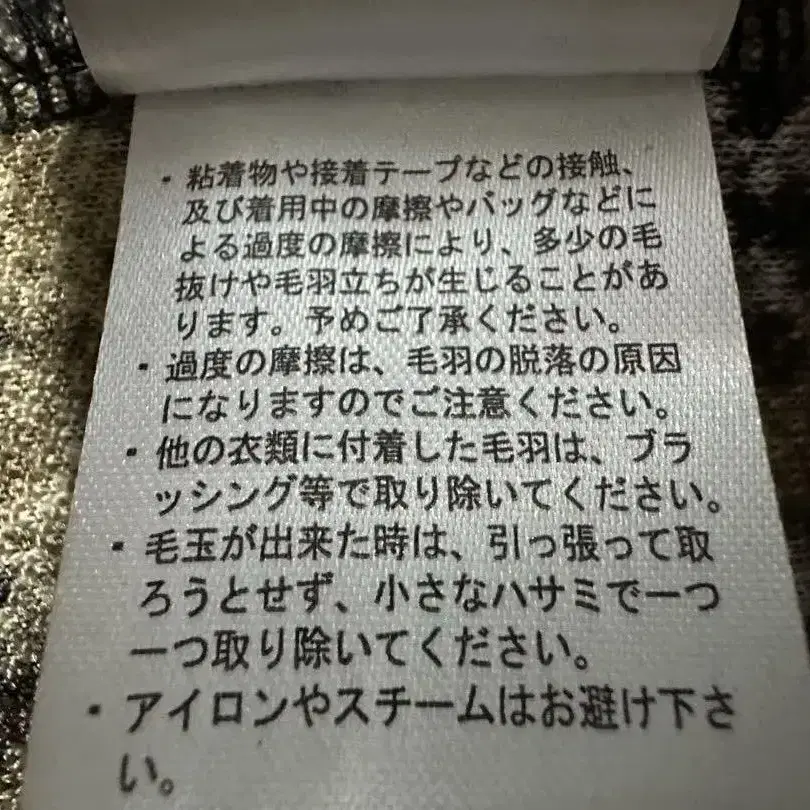 ・粘着物や接着テープなどの接触、
及び着用中の摩擦やバッグなどに
よる過度の摩擦により、多少の毛
抜けや毛羽立ちが生じることがあ
ります。予めご了承ください。
・過度の摩擦は、毛羽の脱落の原因
になりますのでご注意ください。
・他の衣類に付着した毛羽は、ブラ
ッシング等で取り除いてください。
・毛玉が出来た時は、引っ張って取
ろうとせず、小さなハサミで一つ
一つ取り除いてください。
・アイロンやスチームはお避け下さ
い。